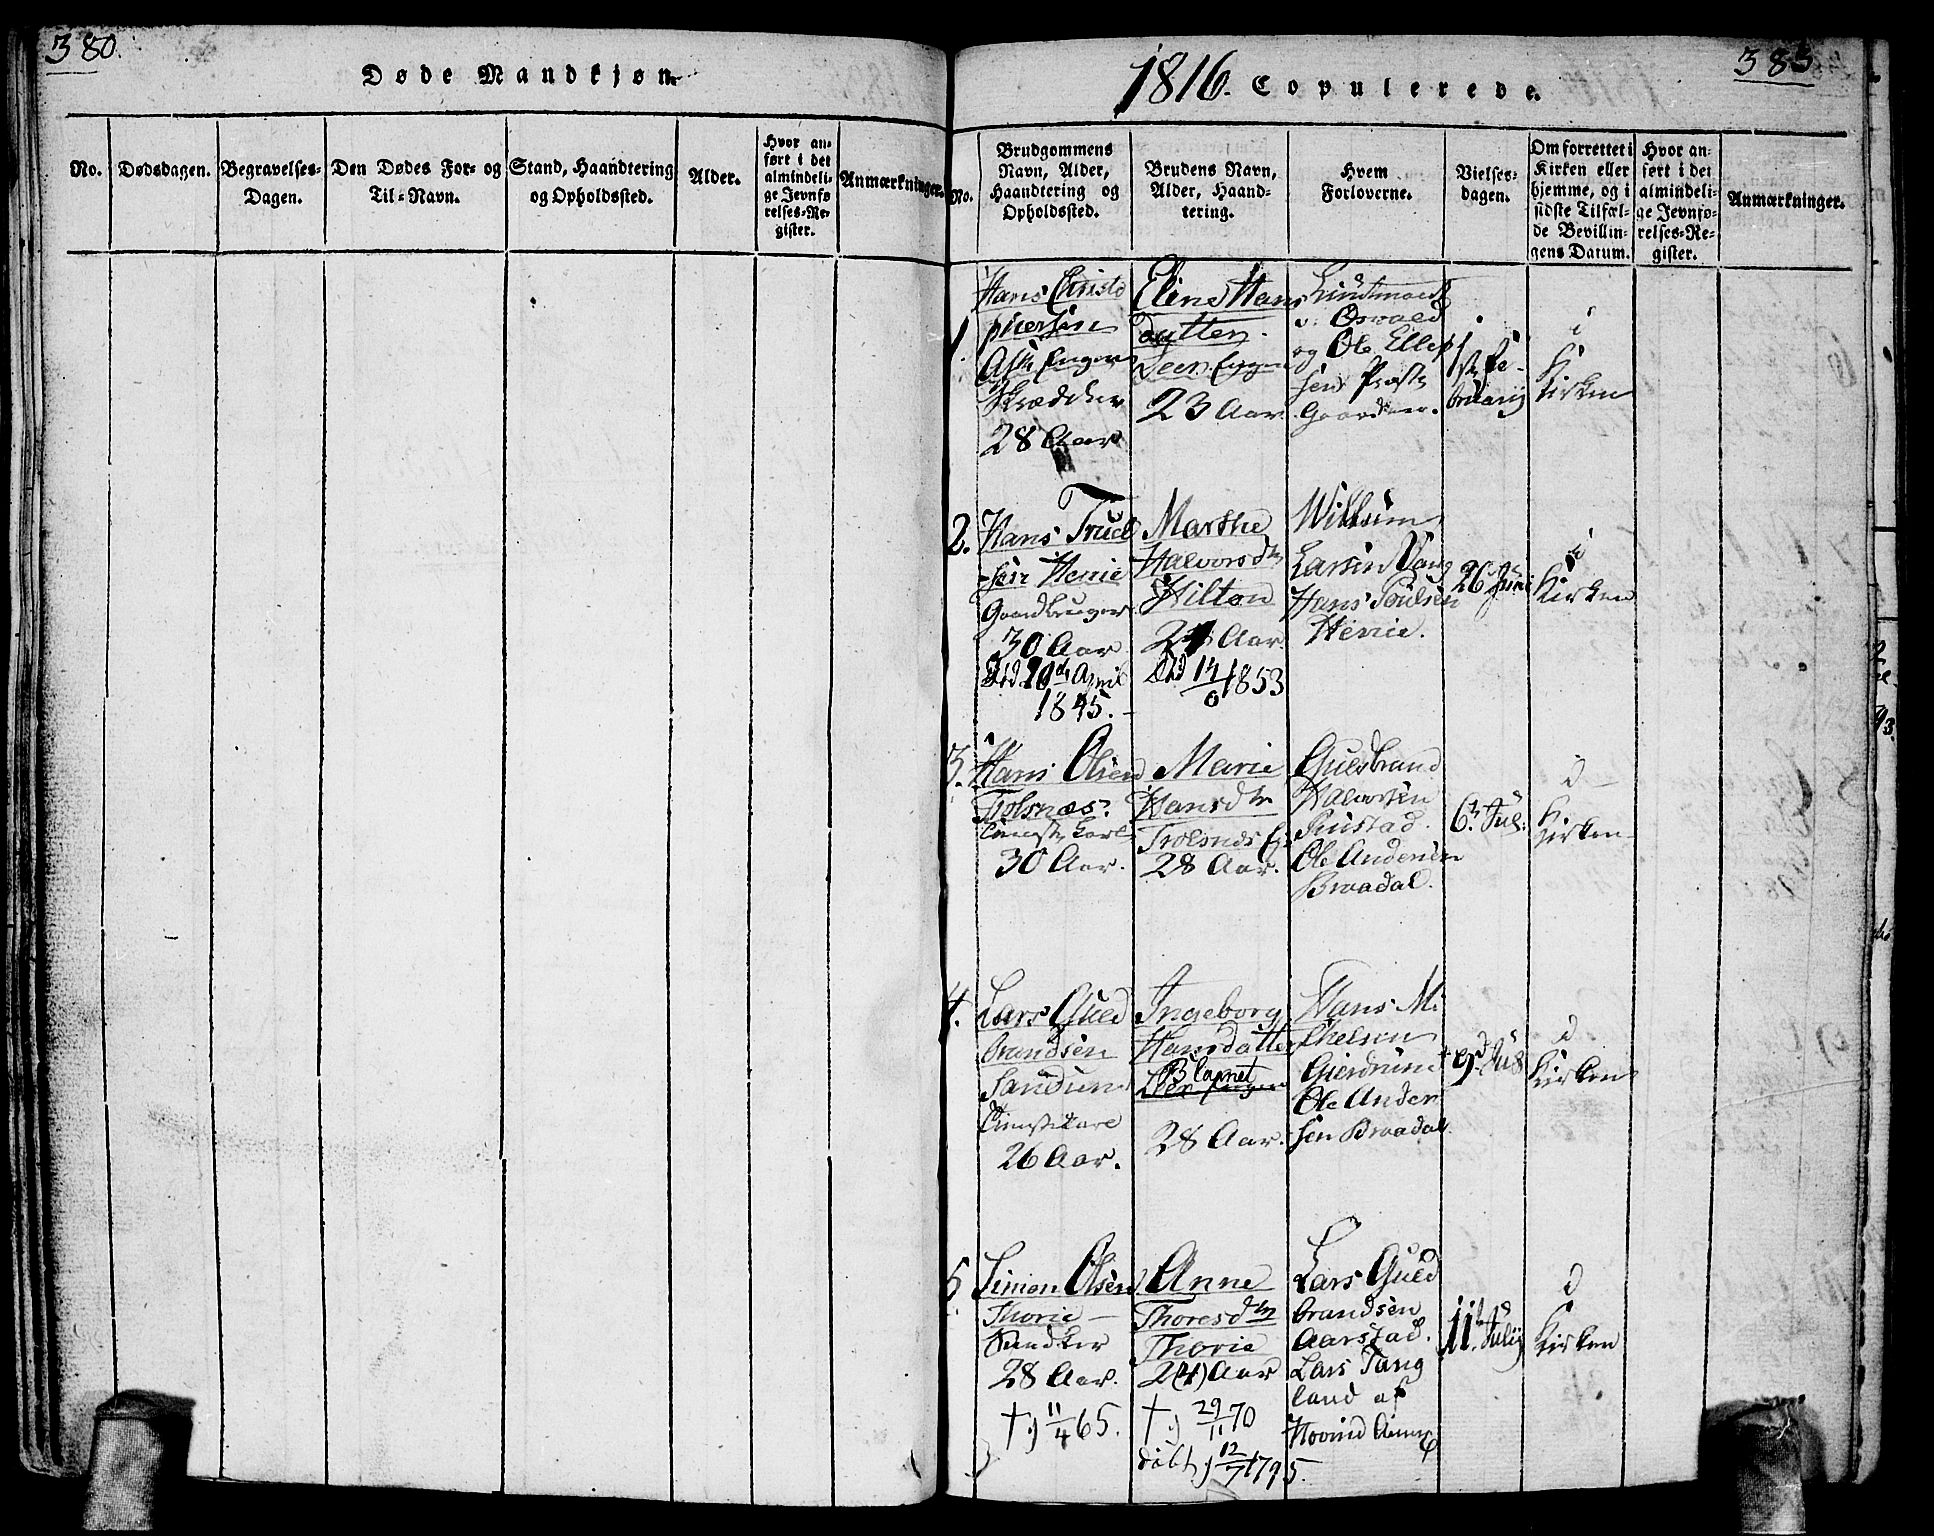 380.
Døde Mandkjøn.
No.
Dødsdagen.
Begravelses-
Dagen.
Den Dødes For- og
Til-Navn.
Stand, Haandtering
og Opholdssted.
Alder.
Hvor an-
ført i det
almindeli-
ge Jevnfø-
relses-Re-
gister.
Anmærkninger.
1816. Copulerede.
385
No.
Brudgommens
Navn, Alder,
Haandtering og
Opholdssted.
Brudens Navn,
Alder, Haand-
tering.
Hvem
Forloverne.
Vielses-
dagen.
Om forrettet i
Kirken eller
hjemme, og i
sidste Tilfæl-
de Bevillin-
gens Datum.
Hvor an-
ført i det
almindeli-
ge Jevnfø-
relses-Re-
gister.
Anmærkninger.
1.
Hans Christo
phersen
Ask
Skrædder
28 Aar
Eline Hans
datter
23 Aar
Osvald
og Ole Ellef
sen Præste
Gaarden.
1ste Fe-
bruarij
i
Kirken
2.
Hans Truels
sen Henie
Gaardbruger
30 Aar
Død 20de April
1845.
Marthe
Halvorsdtr
Hilton
24 Aar.
Død 14/6 1853
Willum
Larsen Vang
Hans Poulsen
Henie.
26 Juni
i
Kirken
3.
Hans Olsen
Trolsnæs
Tienste Karl
30 Aar.
Marie
Hansdtr
Trolsnæs
28 Aar.
Guldbrand
Halvorsen
Rustad.
Ole Andersen
Braadal.
6te Jul.
i
Kirken
4.
Lars Guld
brandsen
Sandum
Tienstekarl
26 Aar.
Ingeborg
Hansdatter
28 Aar.
Hans Mi
chelsen
Gierdrum
Ole Ander
sen Braadal.
9d Jul
i
Kirken
5.
Simon Olsen
Thorie
Snedker
28 Aar.
† 11/4 65.
Anne
Thoresdtr
Thorie
2(4) Aar
† 29/11 70
døbt 12/7 1795.
Lars Guld
brandsen
Aarstad.
Lars Tang
land af
Hovind
11t Julij
i
Kirken